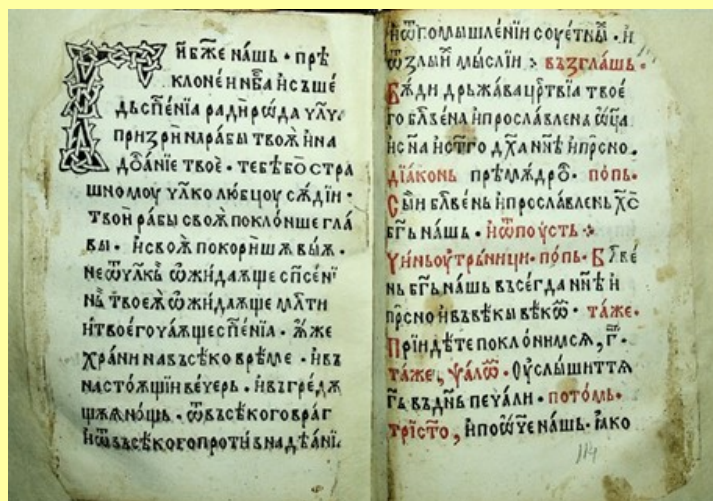 Г҃и бж҃е на́шь · прѣ
клоне́и нб҃са и҆ съше
дь сп҃се́нїа ради рѡ́да чл҃чь
призри̑ на рабы̀ твоѫ̀ и҆ на
дѡа́нїе твоѐ · тебѣ́ бо стра
шномоу чл҃колю́бцоу сѫдїи̑ ·
твои̑ рабы̀ своѫ̀ покло́нше гла
вы̀ · и҆ своѫ̀ покори́шѫ выѫ̀ ·
не ѿ чл҃кь ѡ҆жида́ѫще сп҃се́нї
нь̀ твоеѫ̀ ѡ҆жида́ѫще мл҃ти
и҆ твоего̀ чаѫще сп҃се́нїа · ѫ҆́же
храни̑ на въсѣ́ко врѣ́ме · и҆ въ
настоѫ́щїи ве́черь · и҆ въ грѧдѫ
щѫѫ но́щь · ѿ въсѣ́кого враг
и҆ ѿ въсѣ́кого проти́вна дѣа́нї
и҆ ѿ помышле́нїи соуе́тны · и҆
ѿ злы́и мы́слїи · възгла́шь ·
Бѫ́ди дрьжа́ва цр҃твїа твое
го бл҃ве́на и҆ просла́влена ѡ҆ц҃а
и҆ сн҃а и҆ ст҃го дх҃а нн҃ѣ и҆ пр҃сно ·
дїа́конь прѣмѫ́дрѡ · по́пь ·
Сы́и бл҃ве́нь и҆ просла́влень хс҃
бг҃ь на́шь · и҆ ѿпоу́сть
чи́нь оу҆́трьници · по́пь · Бл҃ве́
нь бг҃ь на́шь въсегда̀ нн҃ѣ и҆
пр҃сно и҆ въ вѣ́кы вѣкѡ́ · та́же ·
Прїидѣ́те поклони́мсѧ, г҃ ·
та́же, ѱало́ · Оу҆слы́шит тѧ
г҃ь въ дн҃ь печа́ли · пото́мь
трїсто́, и҆ по ѿч҃е на́шь · ꙗ҆́ко
114